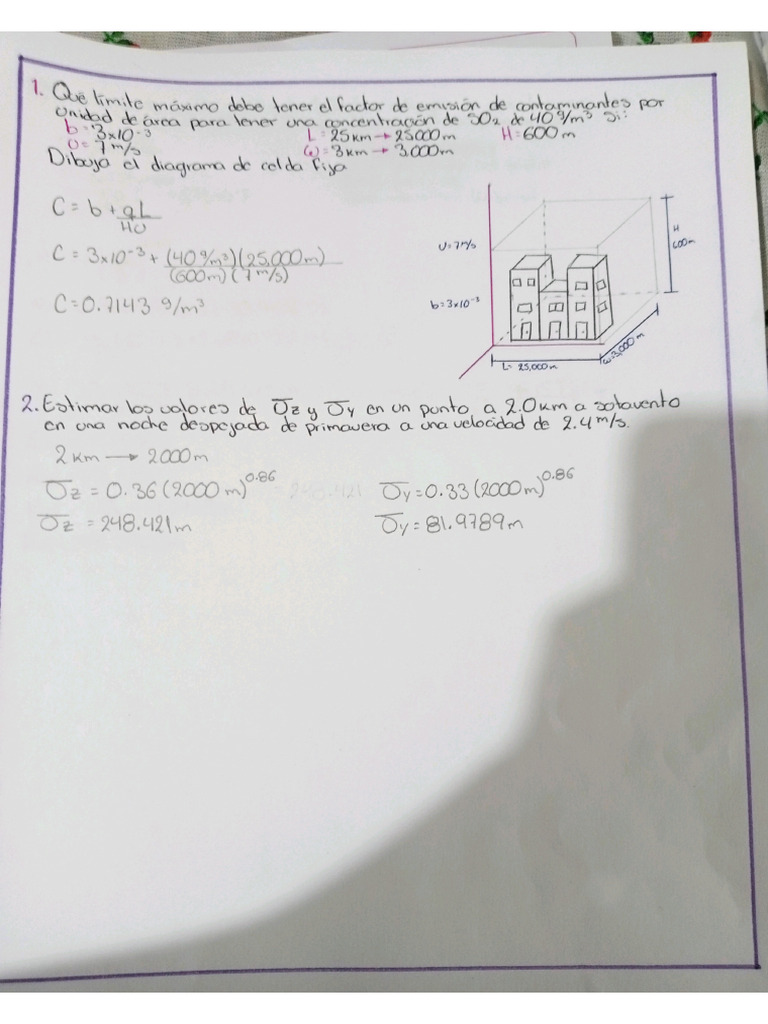 1. Qué límite máximo debe tener el factor de emisión de contaminantes por
unidad de área para tener una concentración de SO2 de 40 g/m³ si:
b = 3x10⁻³ L = 25 km → 25000 m H = 600 m
U = 7 m/s W = 3 km → 3.000 m
Dibuja el diagrama de celda fija
C = b + qL/HU
C = 3x10⁻³ + (40 g/m³)(25,000 m)/(600m)(7 m/s)
C = 0.7143 g/m³
U = 7 m/s
b = 3x10⁻³
H
600m
L = 25,000m
W = 3,000m
2. Estimar los valores de σz y σy en un punto a 2.0 km a sotavento
en una noche despejada de primavera a una velocidad de 2.4 m/s.
2 km → 2000 m
σz = 0.36 (2000 m)^0.86 σy = 0.33 (2000 m)^0.86
σz = 248.421 m σy = 81.9789 m